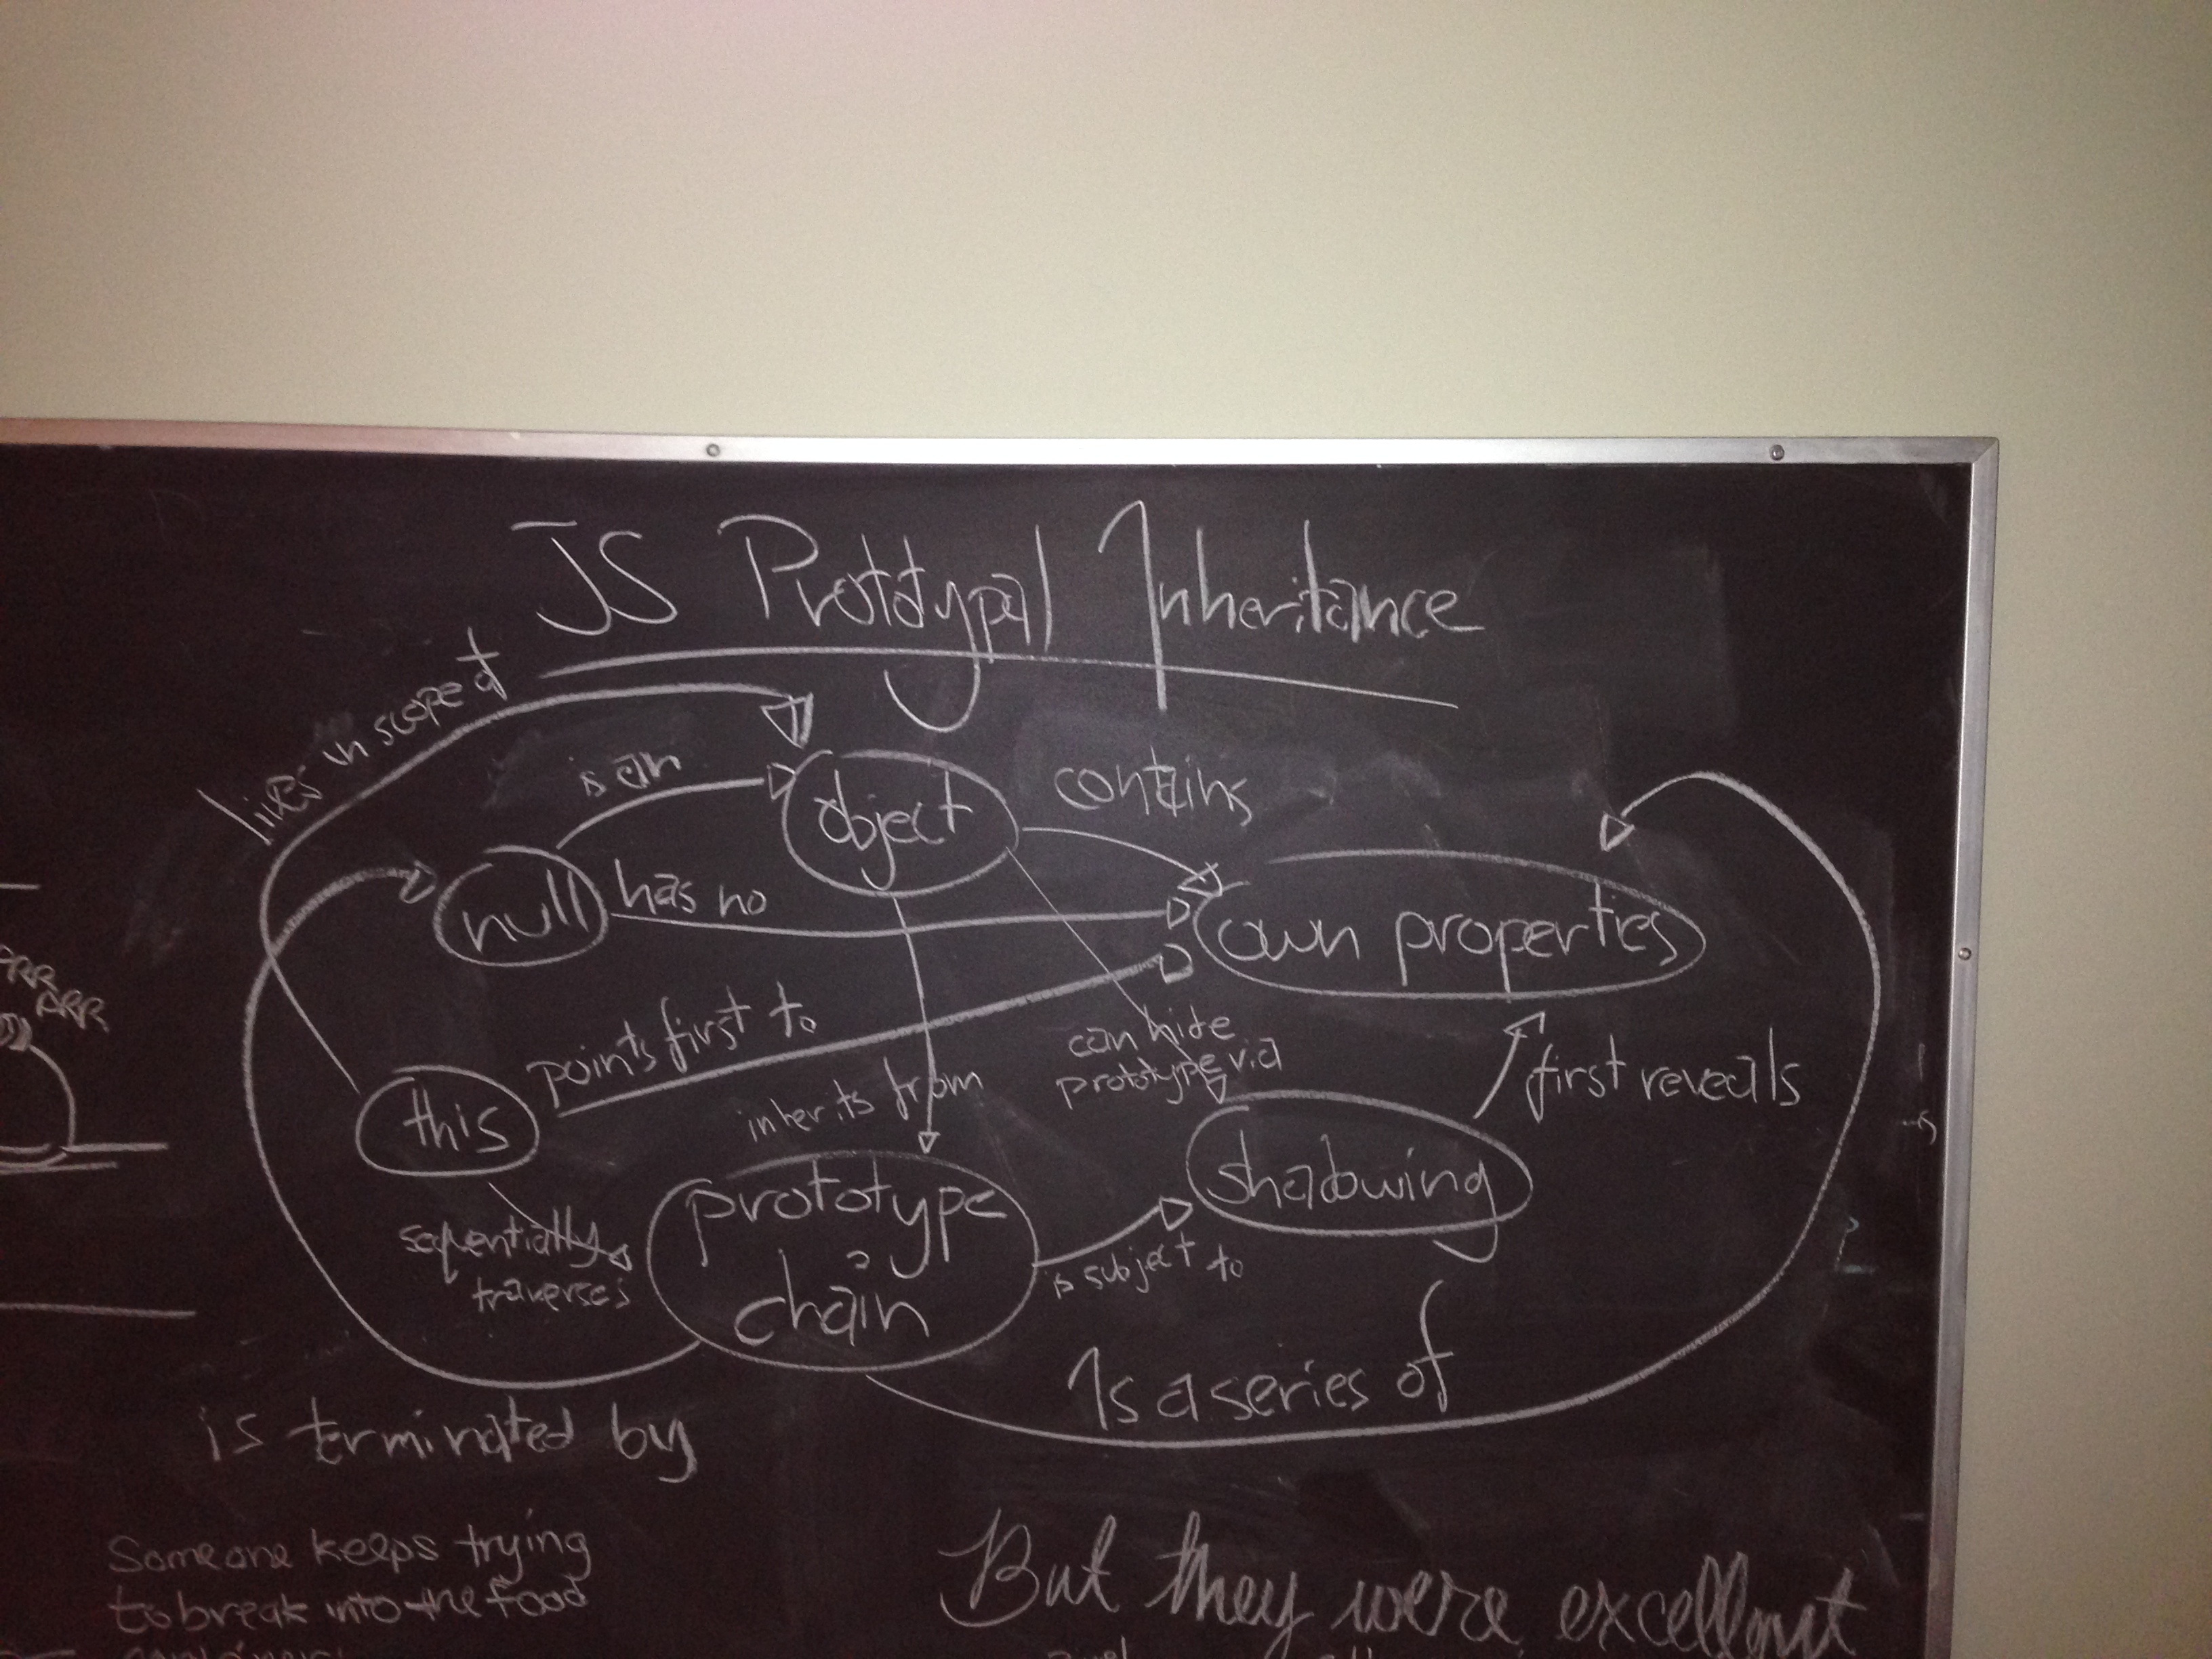 JS Prototypal Inheritance
lives in scope of
is an
object
contains
null
has no
own properties
points first to
can hide
prototype via
this
inherits from
first reveals
shadowing
prototype
chain
sequentially
traverses
is subject to
Is a series of
is terminated by
ARR
Someone keeps trying
to break into the food
But they were excellent